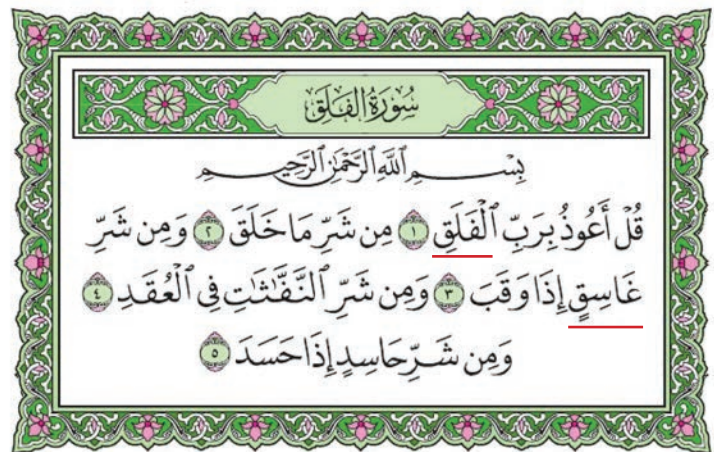 سُورَةُ الْفَلَقِ
بِسْمِ اللَّهِ الرَّحْمَٰنِ الرَّحِيمِ
قُلْ أَعُوذُ بِرَبِّ ٱلْفَلَقِ ١ مِن شَرِّ مَا خَلَقَ ٢ وَمِن شَرِّ
غَاسِقٍ إِذَا وَقَبَ ٣ وَمِن شَرِّ ٱلنَّفَّـٰثَـٰتِ فِى ٱلْعُقَدِ ٤
وَمِن شَرِّ حَاسِدٍ إِذَا حَسَدَ ٥